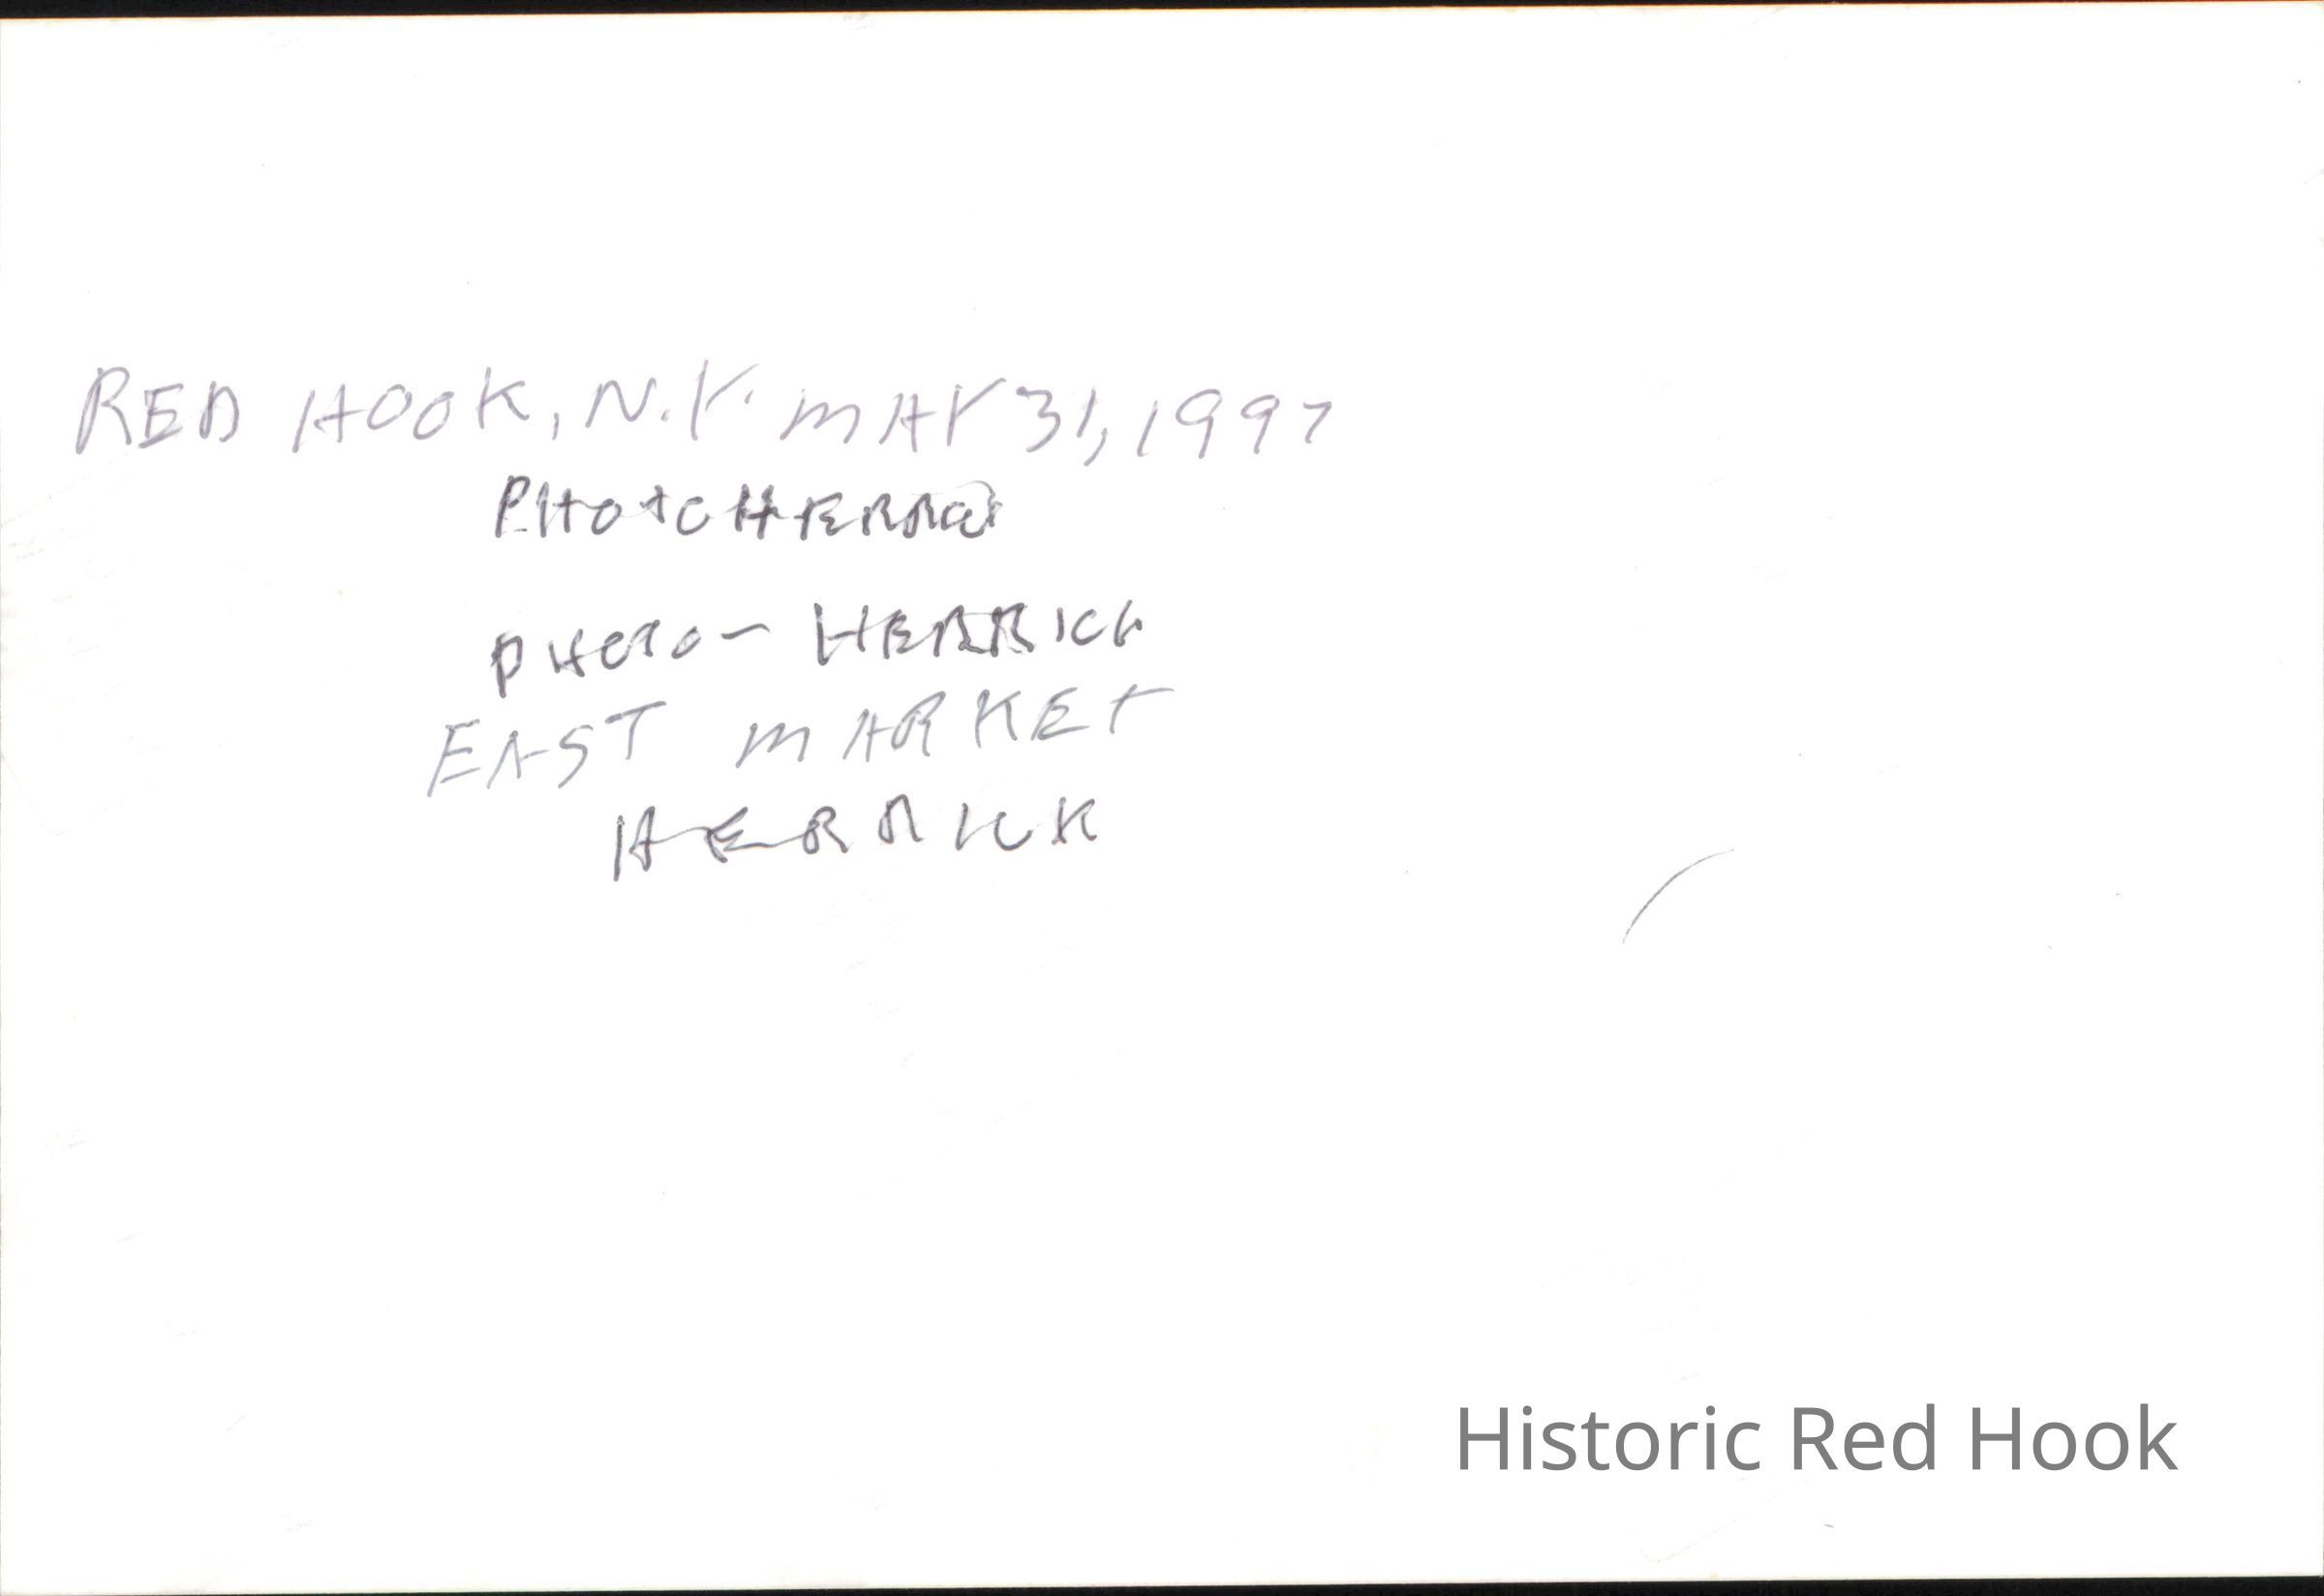 RED HOOK, N.Y. MAY 31, 1997
PHOTO
PHOTO - HERRICK
EAST MARKET
HERRICK
Historic Red Hook